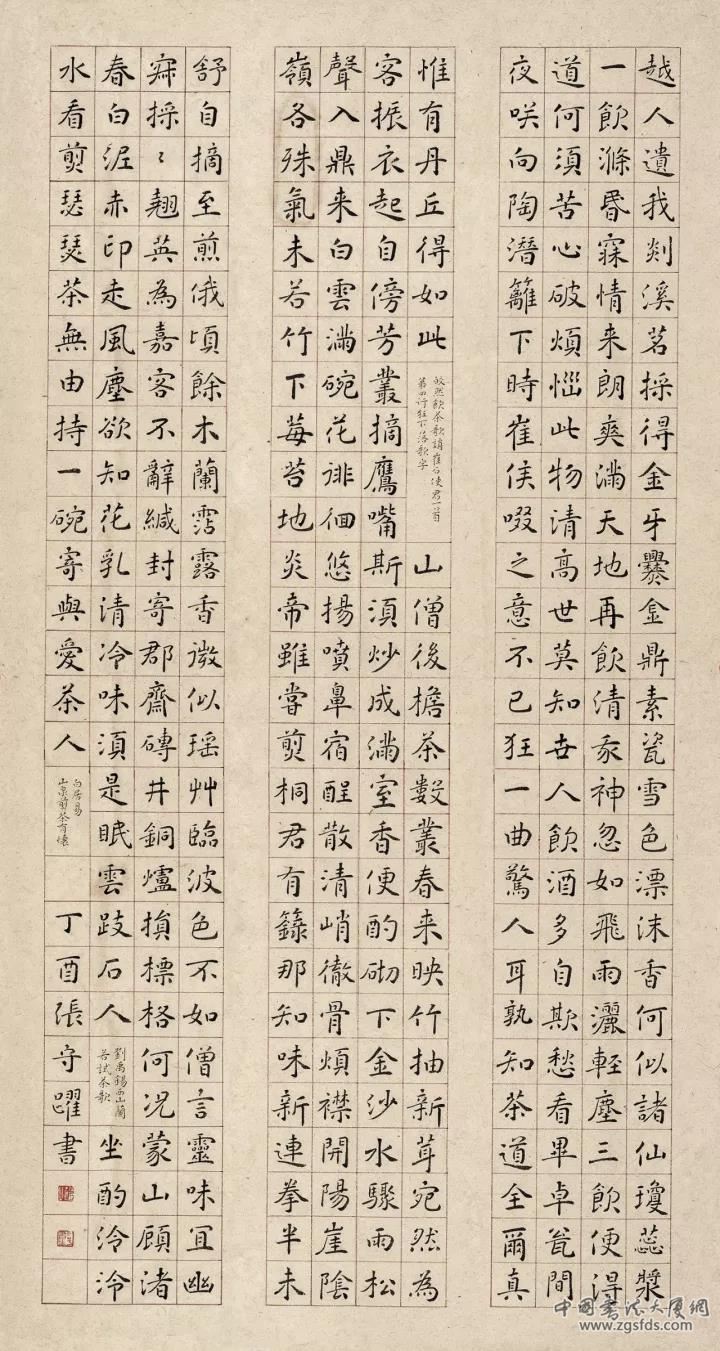 越人遺我剡溪茗採得金牙爨金鼎素瓷雪色漂沫香何似諸仙瓊蕊漿
一飲滌昏寐情来朗爽滿天地再飲清我神忽如飛雨灑輕塵三飲便得
道何須苦心破煩惱此物清高世莫知世人飲酒多自欺愁看畢卓瓮間
夜咲向陶潛籬下時崔侯啜之意不已狂一曲驚人耳孰知茶道全爾真
惟有丹丘得如此
皎然飲茶歌誚崔石使君一首
第四行狂下落歌字
山僧後檐茶數叢春来映竹抽新茸宛然為
客振衣起自傍芳叢摘鷹嘴斯須炒成滿室香便酌砌下金沙水驟雨松
聲入鼎来白雲滿碗花徘徊悠揚噴鼻宿酲散清峭徹骨煩襟開陽崖陰
嶺各殊氣未若竹下莓苔地炎帝雖嘗剪桐君有籙那知味新連拳半未
舒自摘至煎俄頃餘木蘭霑露香微似瑶艸臨波色不如僧言靈味宜幽
寂採〻翹英為嘉客不辭緘封寄郡齋磚井銅爐損標格何況蒙山顧渚
春白泥赤印走風塵欲知花乳清冷味須是眠雲跂石人
劉禹錫西山蘭
若試茶歌
坐酌泠泠
水看剪瑟瑟茶無由持一碗寄與愛茶人
白居易
山泉煎茶有懷
丁酉張守躍書
中国书法大厦網
www.zgsfds.com